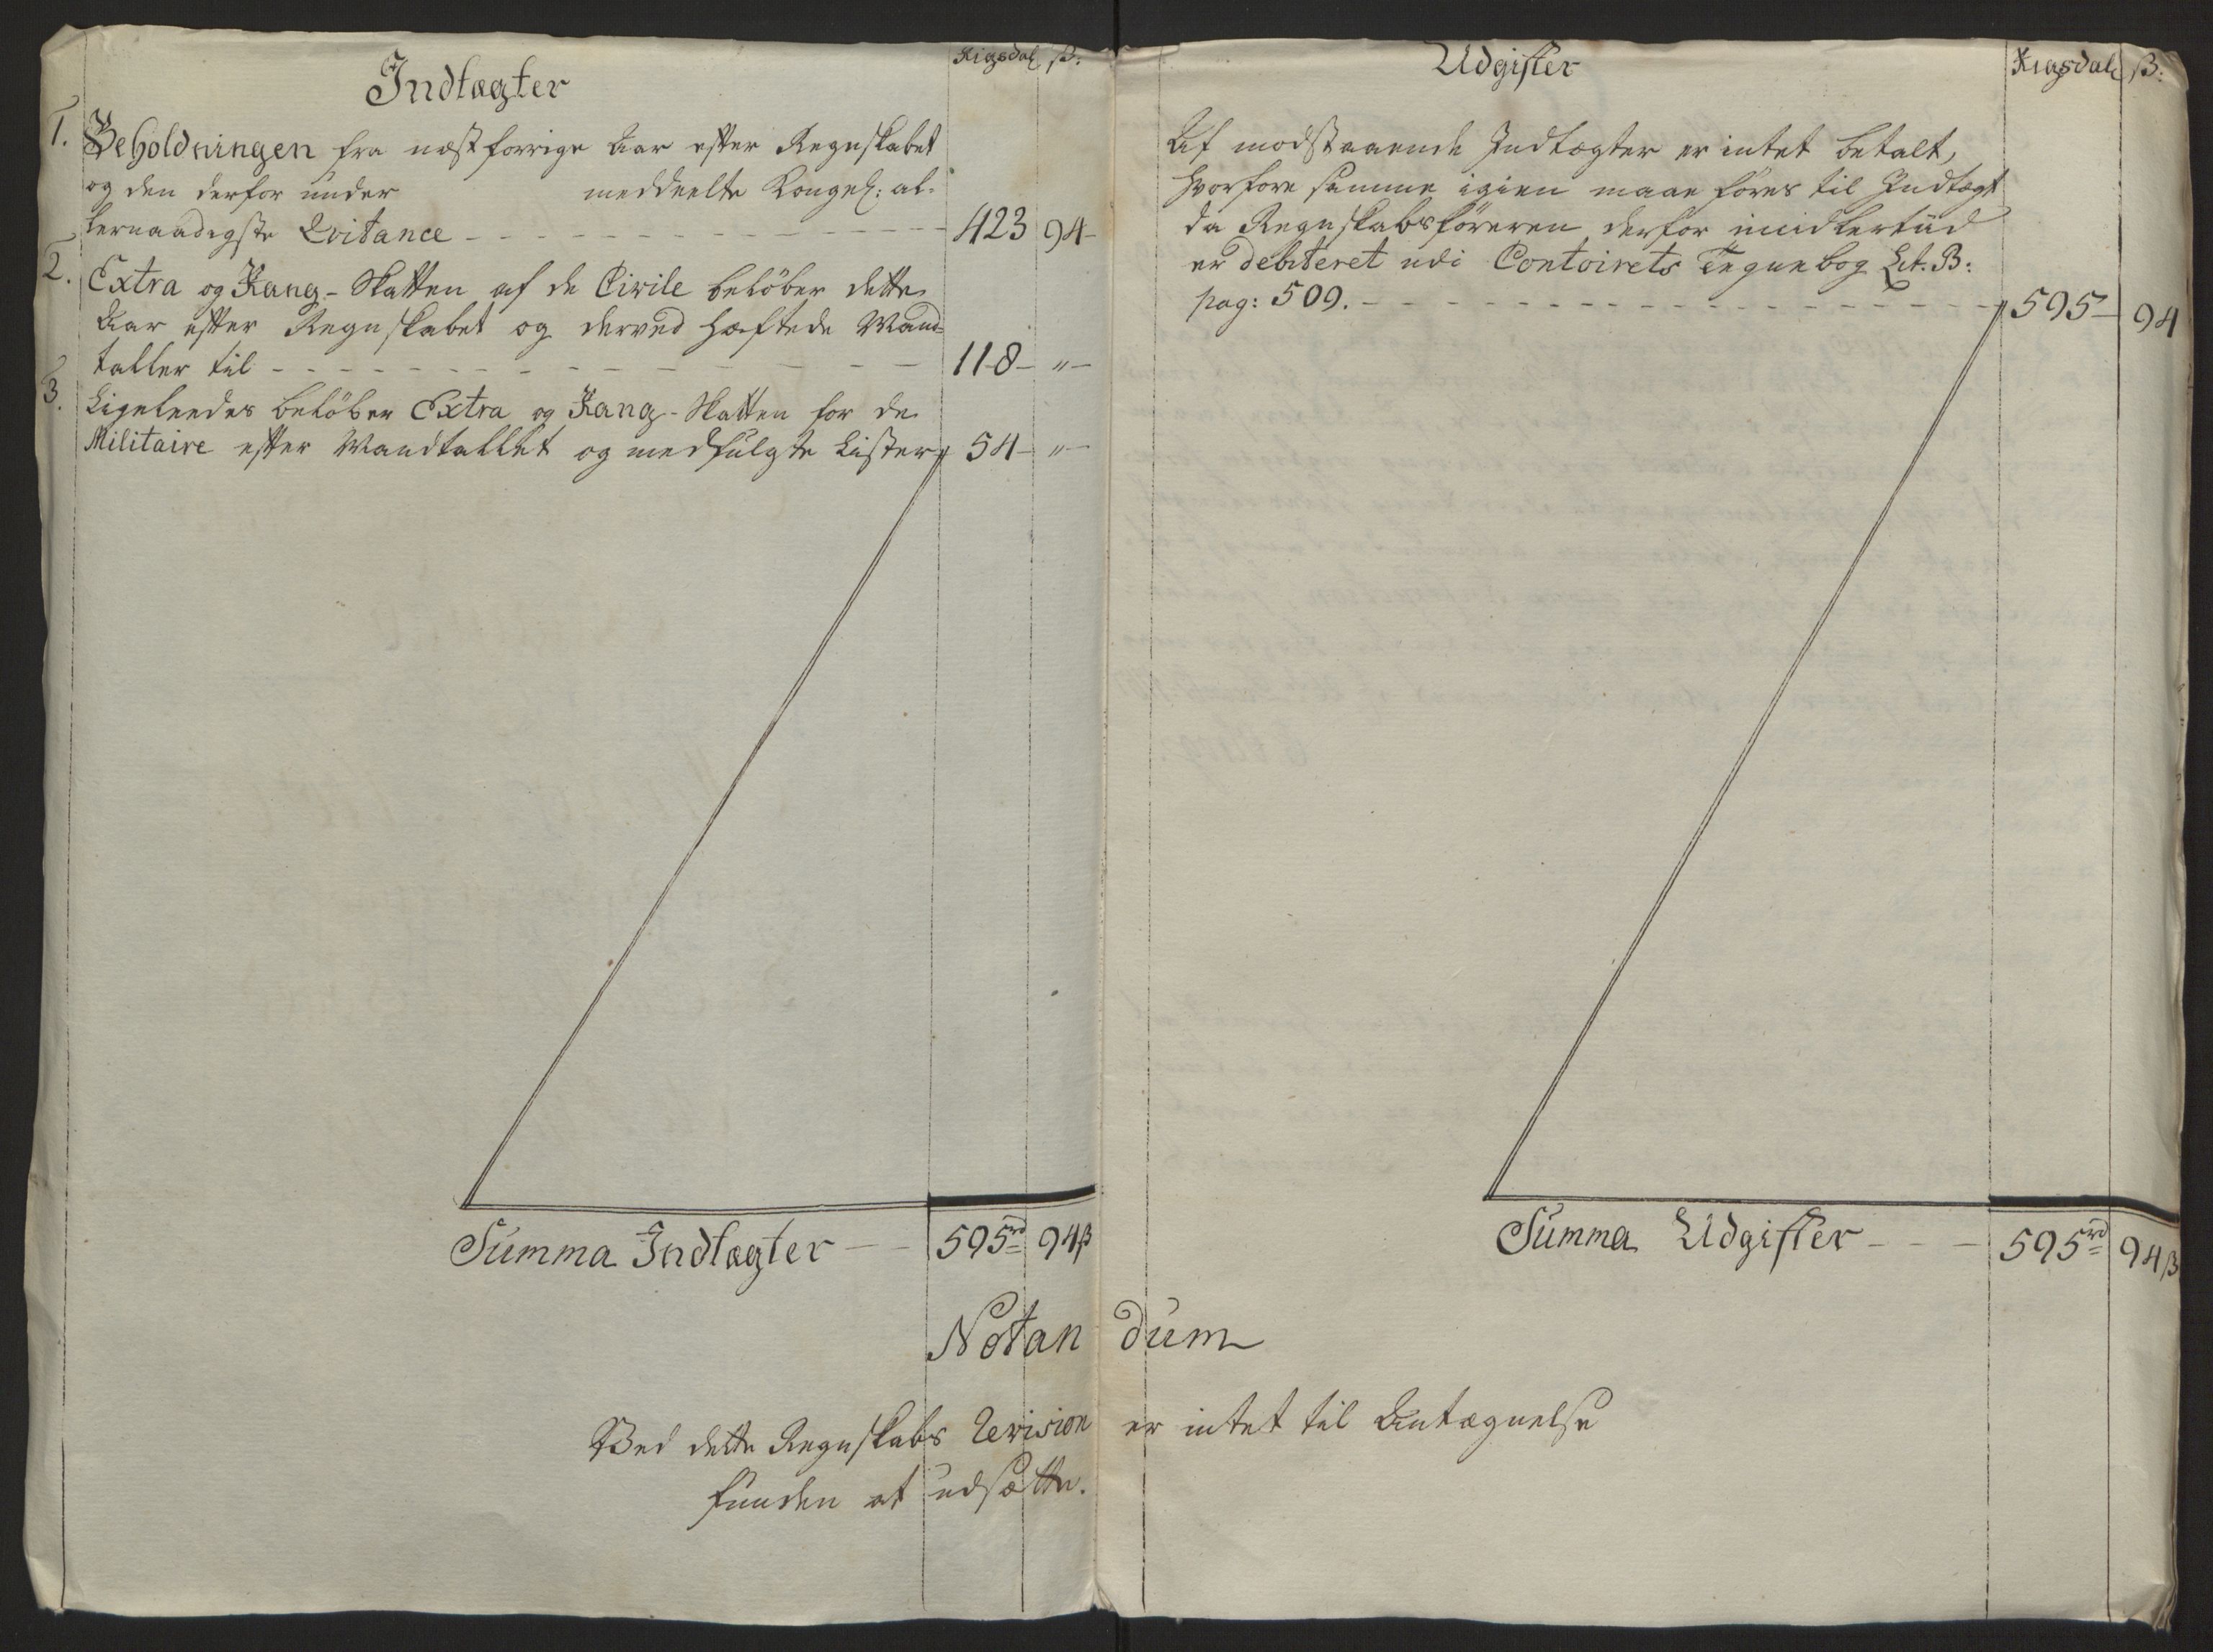 Indtægter
Rigsdal ß.
1. Beholdningen fra næstforrige Aar efter Regnskabet
og den derfor under meddeelte Kongel: al-
lernaadigste Qvitance 423 94
2. Extra og Rang-Skatten af de Civile beløber dette
Aar efter Regnskabet og derved hæftede Mand-
taller til 118 "
3. Ligeleedes beløber Extra og Rang-Skatten for de
Militaire efter Mandtallet og medfulgte Lister 54 "
Summa Indtægter 595rd 94ß
Udgifter
Rigsdal ß:
Af modstaaende Indtægter er intet betalt,
hvorfore samme igien maae føres til Indtægt
da Regnskabsføreren derfor imidlertiid
er debiteret udi Contoirets Tegnebog Lit. B:
pag: 509. 595 94
Summa Udgifter 595rd 94ß
Notandum
Ved dette Regnskabs Revision er intet til Antægnelse
funden at udsætte.